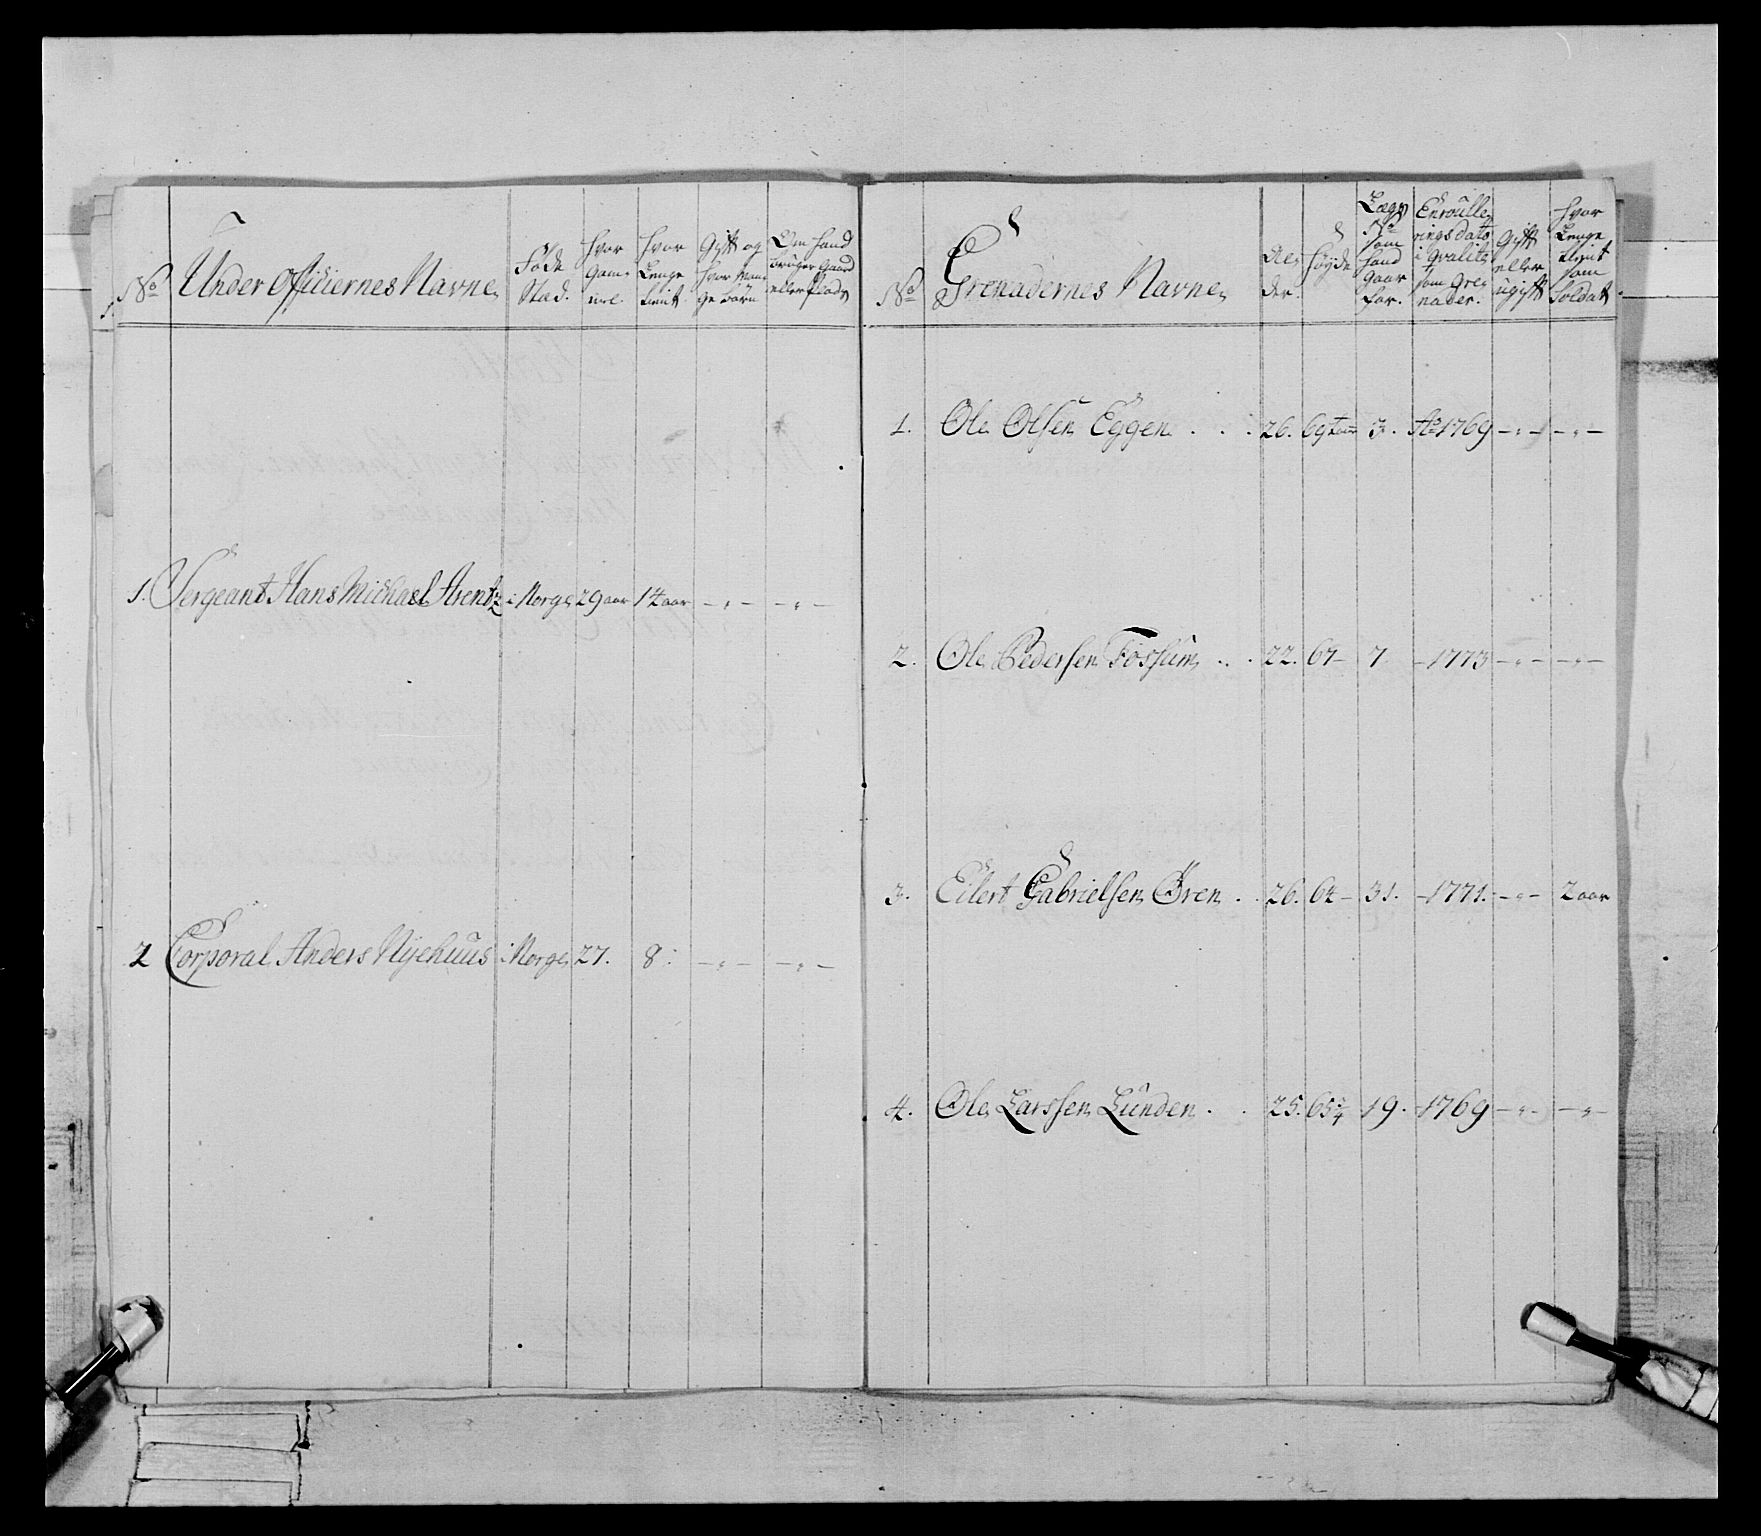 No
Under Officiernes Navne
Føde Stad.
hvor Gammel
hvor Lenge tient
Gift og hvor Mange Børn
Om hand bruger Gaard eller Plads
1. Sergeant Hans Michael Arentz i Norge 29 aar 14 aar – " – – " –
2 Corporal Anders Nyehuus i Norge 27. 8. – " – – " –
No
Grenadernes Navne
Alder.
Høyde
Lægs No som hand gaar for.
Enroulleringsdato i Qvalitz som Grenader.
Gift eller ugift
hvor Lenge tient som Soldat
1. Ole Olsen Eggen . . . 26. 69 Tom 3. Ao 1769 – " – – " –
2. Ole Pedersen Fossum . . 22. 67 – 7 – 1773 – " – – " –
3. Eilert Gabrielsen Øren . . 26. 64 – 31. – 1771. – " – 2 aar
4. Ole Larssen Lunden . . 25. 65 3/4 19. – 1769 – " – – " –